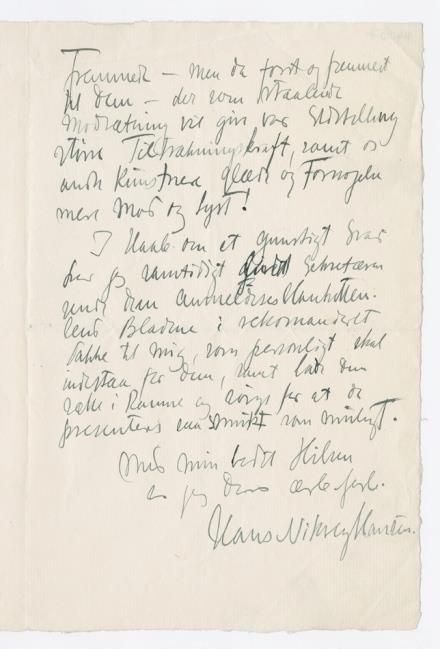 Fremmede – men da først og fremmest
til Dem – der som straalende
Modsætning vil give vor Udstilling
større Tiltrækningskraft, samt os
andre Kunstnere Glæde og Forøgelse
mere Mod og Lyst!
I Haab om et gunstigt Svar
har jeg samtidigt Sekretæren
sende Dem
Bladene i rekomanderet
Pakke til mig, som personligt skal
indestaa for dem, samt lade dem
sætte i Ramme og sørge for at de
presenteres saa smukt som muligt.
Med min bedste Hilsen
er jeg Deres ærb. forb.
Hans Nikolaj Hansen.